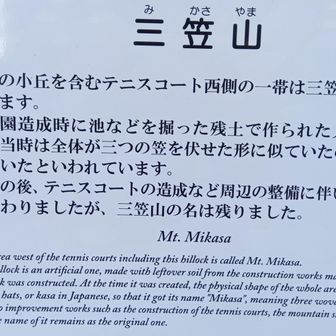 み かさ やま
三笠山
の小丘を含むテニスコート西側の一帯は三笠
ます。
園造成時に池などを掘った残土で作られた人
当時は全体が三つの笠を伏せた形に似ていた
いたといわれています。
の後、テニスコートの造成など周辺の整備に伴い
わりましたが、三笠山の名は残りました。
Mt. Mikasa
rea west of the tennis courts including this billock is called Mt. Mikasa.
llock is an artificial one, made with leftover soil from the construction works ma
k was constructed. At the time it was created, the physical shape of the whole are
hats, or kasa in Japanese, so that it got its name "Mikasa", meaning three wove
o improvement works such as the construction of the tennis courts, the mountain s
e name of it remains as the original one.